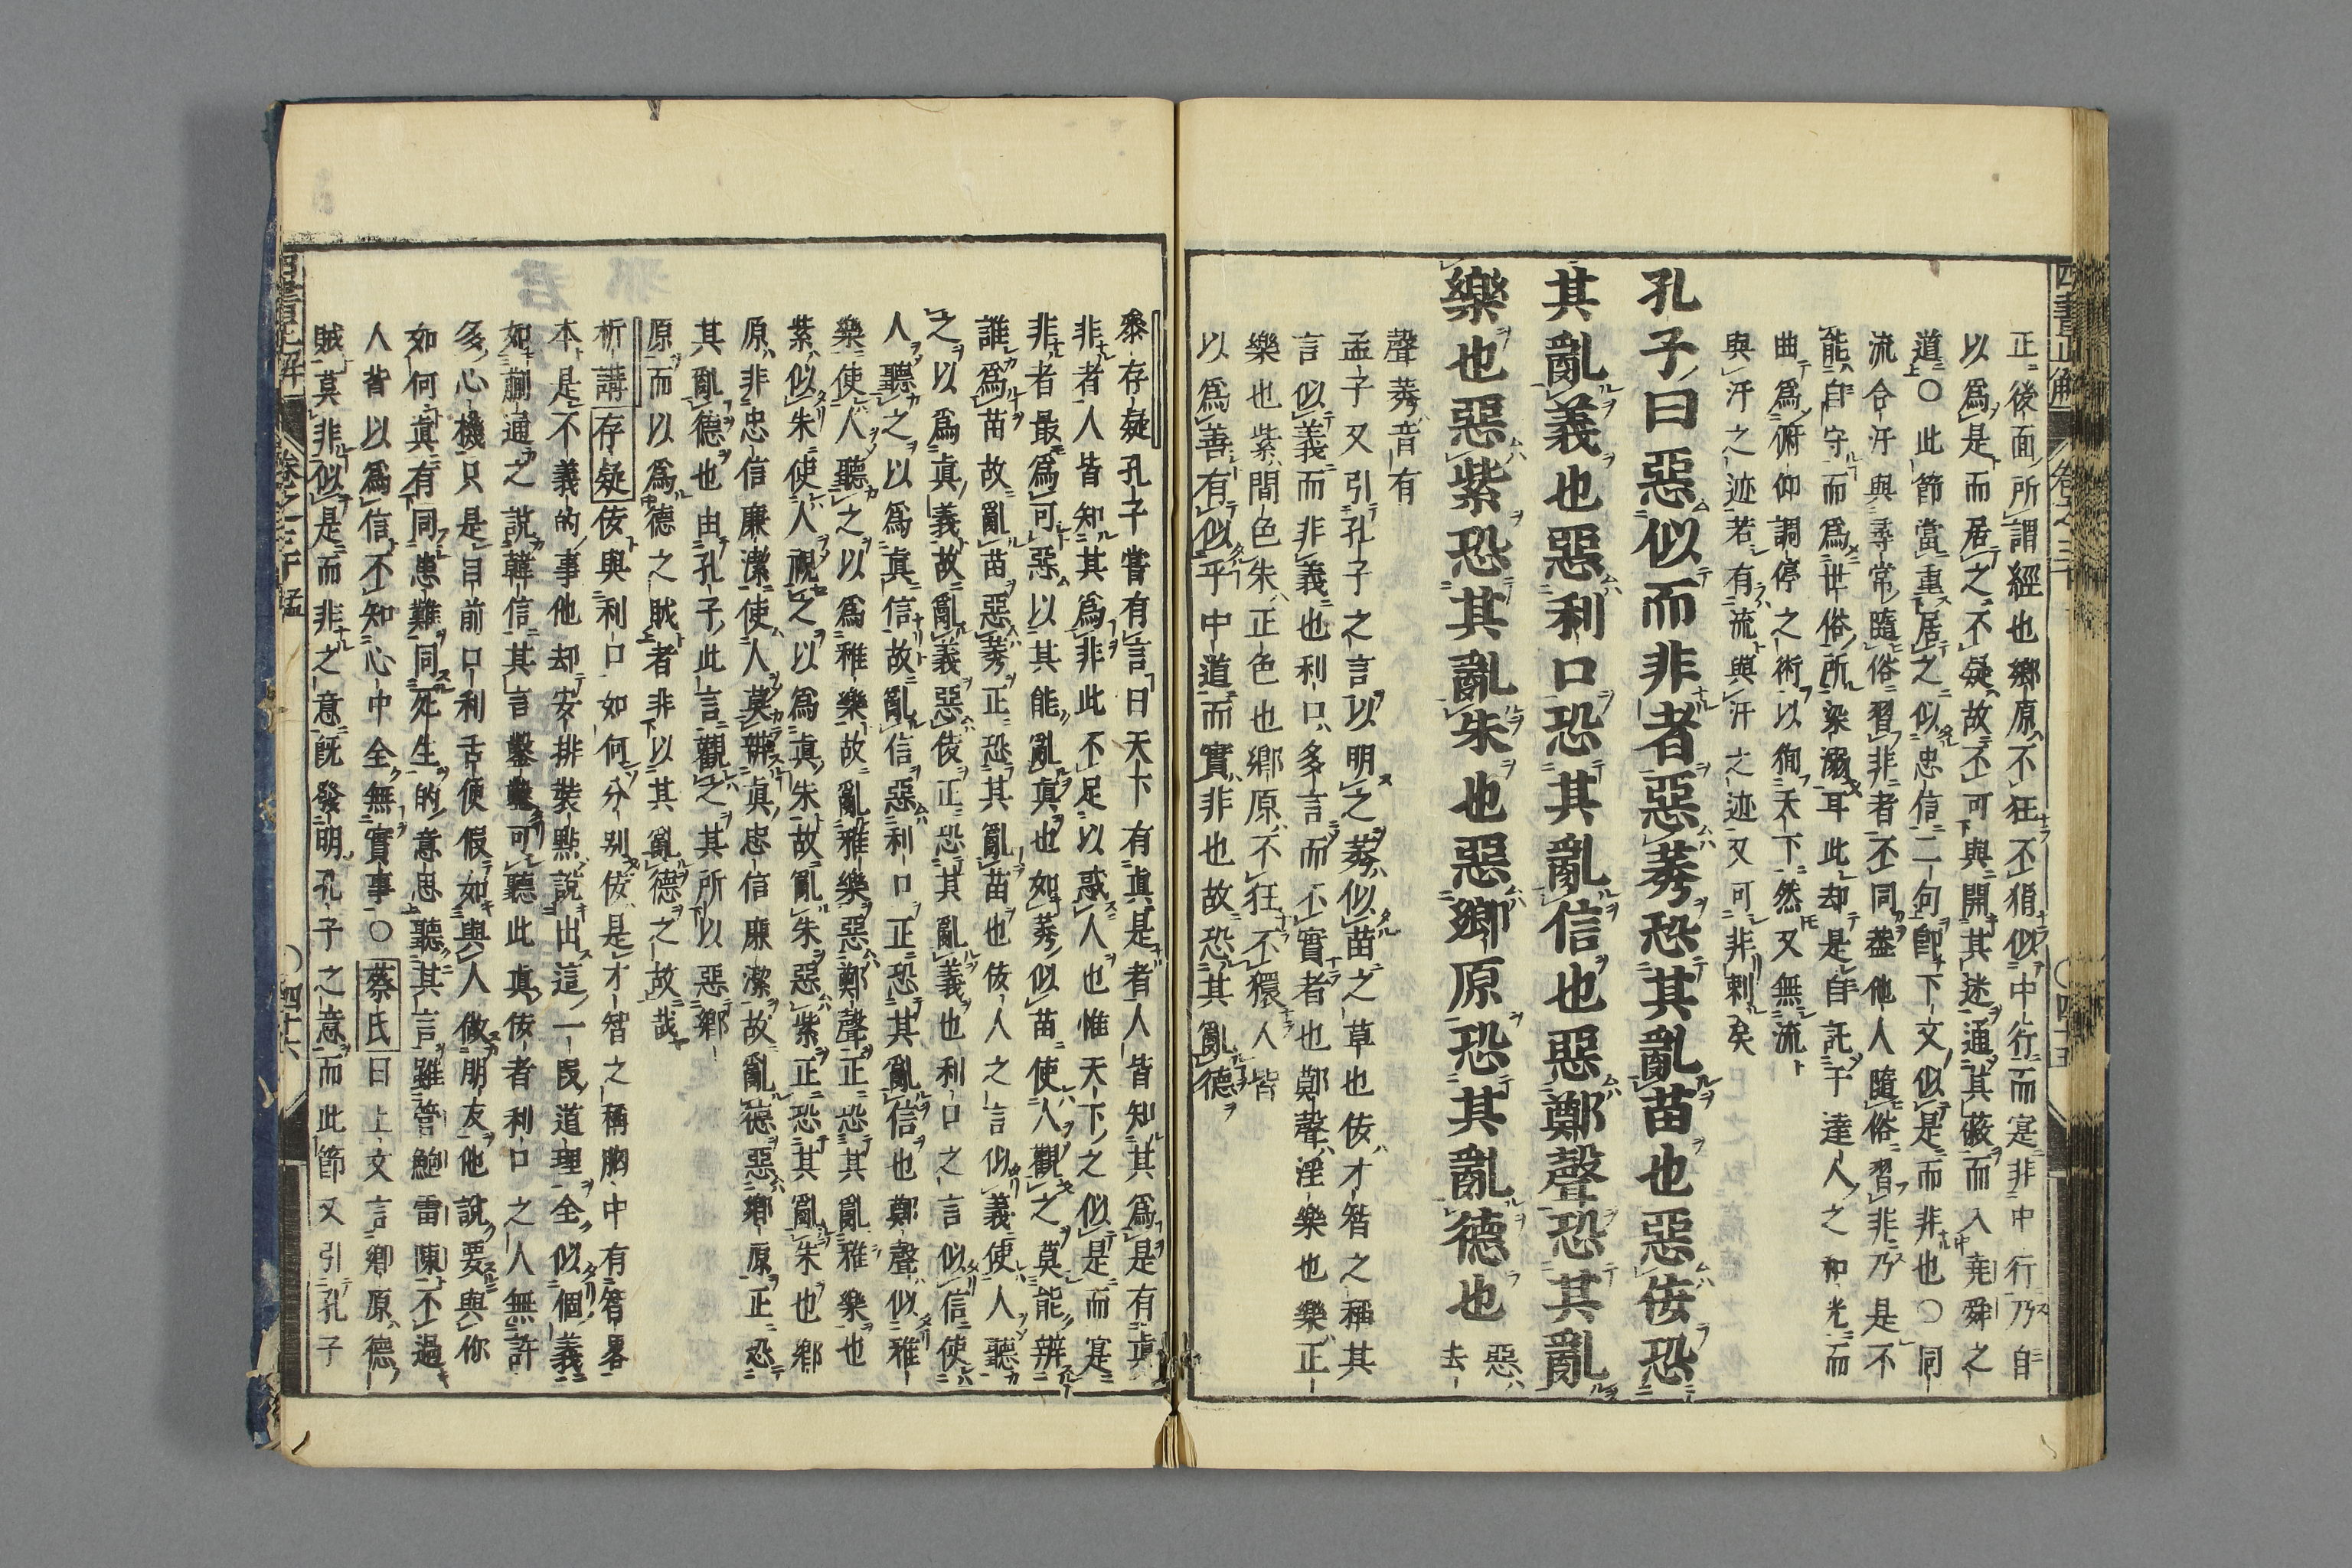 四書正解 卷之三十 〇四十五
正後面所謂經也鄉原不狂不狷似中行而寔非中行乃自
以為是而居之不疑故不可與開其迷通其蔽而入堯舜之
道〇此節當重居之似忠信二句卽下文似是而非也〇同
流合汙與尋常隨俗習非者不同蓋他人隨俗習非乃是不
能自守而為世俗所染溺耳此却是自託于達人之和光而
曲為俯仰調停之術以徇天下然又無流
與汙之迹若有流與汙之迹又可非刺矣
孔子曰惡似而非者惡莠恐其亂苗也惡佞恐
其亂義也惡利口恐其亂信也惡鄭聲恐其亂
樂也惡紫恐其亂朱也惡鄉原恐其亂德也 惡去
聲莠音有
孟子又引孔子之言以明之莠似苗之草也佞才智之稱其
言似義而非義也利口多言而不實者也鄭聲淫樂也樂正
樂也紫間色朱正色也鄉原不狂不獧人皆
以為善有似乎中道而實非也故恐其亂德
叅存疑孔子嘗有言曰天下有眞是者人皆知其為是有眞
非者人皆知其為非此不足以惑人也惟天下之似是而寔
非者最為可惡以其能亂真也如莠似苗使人觀之莫能辨
誰為苗故亂苗惡莠正恐其亂苗也佞人之言似義使人聽
之以為真義故亂義惡佞正恐其亂義也利口之言似信使
人聽之以為真信故亂信惡利口正恐其亂信也鄭聲似雅
樂使人聽之以為雅樂故亂雅樂惡鄭聲正恐其亂雅樂也
紫似朱使人視之以為真朱故亂朱惡紫正恐其亂朱也鄉
原非忠信廉潔使人莫辨真忠信廉潔故亂德惡鄉原正恐
其亂德也由孔子此言觀之其所以惡鄉
原而以為德之賊者非以其亂德之故哉
析講存疑佞與利口如何分別佞是才智之稱胸中有智畧
本是不義的事他却安排裝點說出這一叚道理全似個義
如蒯通之說韓信其言鑿鑿可聽此真佞者利口之人無許
多心機只是目前口利舌便假如與人做朋友他說要與你
如何真有同患難同死生的意思聽其言雖管鮑雷陳不過
人皆以為信不知心中全無實事〇蔡氏曰上文言鄉原德
賊莫非似是而非之意旣發明孔子之意而此節又引孔子
四書正解 卷之三十孟 〇四十六